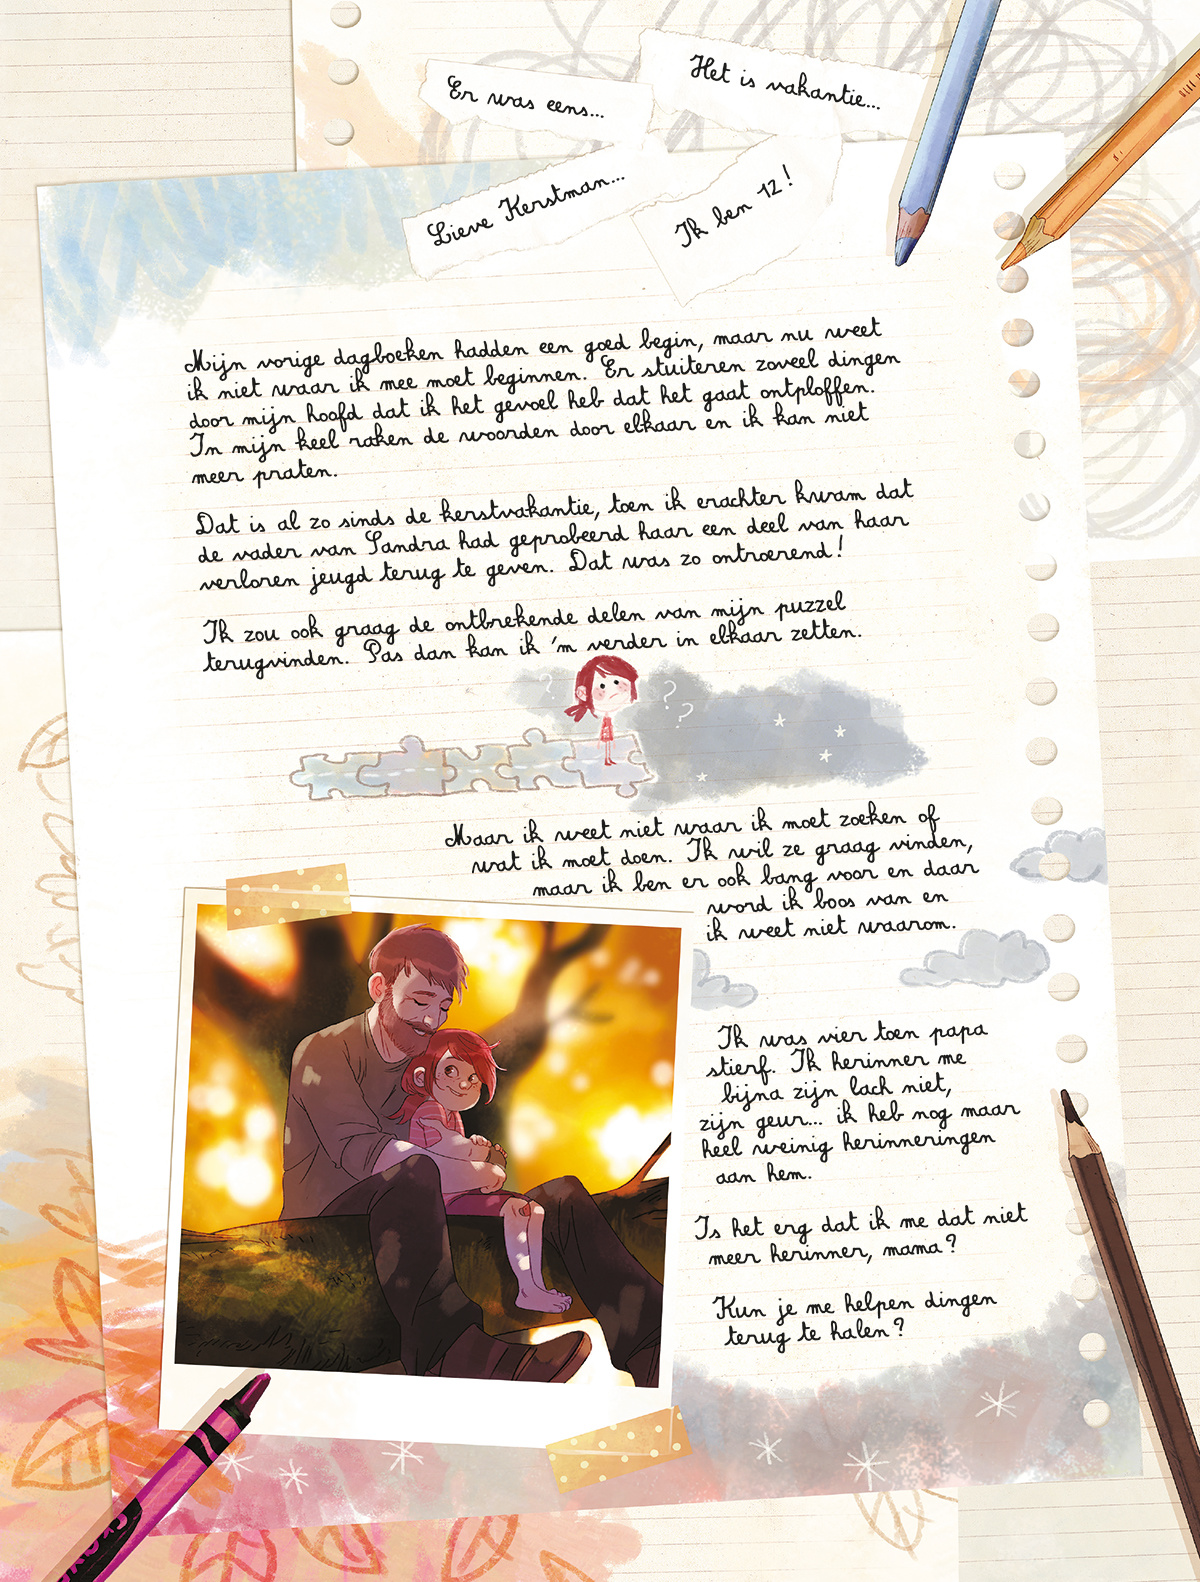 Er was eens...
Het is vakantie...
Lieve Kerstman...
Ik ben 12!
Mijn vorige dagboeken hadden een goed begin, maar nu weet
ik niet waar ik mee moet beginnen. Er stuiteren zoveel dingen
door mijn hoofd dat ik het gevoel heb dat het gaat ontploffen.
In mijn keel raken de woorden door elkaar en ik kan niet
meer praten.
Dat is al zo sinds de kerstvakantie, toen ik erachter kwam dat
de vader van Sandra had geprobeerd haar een deel van haar
verloren jeugd terug te geven. Dat was zo ontroerend!
Ik zou ook graag de ontbrekende delen van mijn puzzel
terugvinden. Pas dan kan ik 'm verder in elkaar zetten.
? ? ?
Maar ik weet niet waar ik moet zoeken of
wat ik moet doen. Ik wil ze graag vinden,
maar ik ben er ook bang voor en daar
word ik boos van en
ik weet niet waarom.
Ik was vier toen papa
stierf. Ik herinner me
bijna zijn lach niet,
zijn geur... ik heb nog maar
heel weinig herinneringen
aan hem.
Is het erg dat ik me dat niet
meer herinner, mama?
Kun je me helpen dingen
terug te halen?